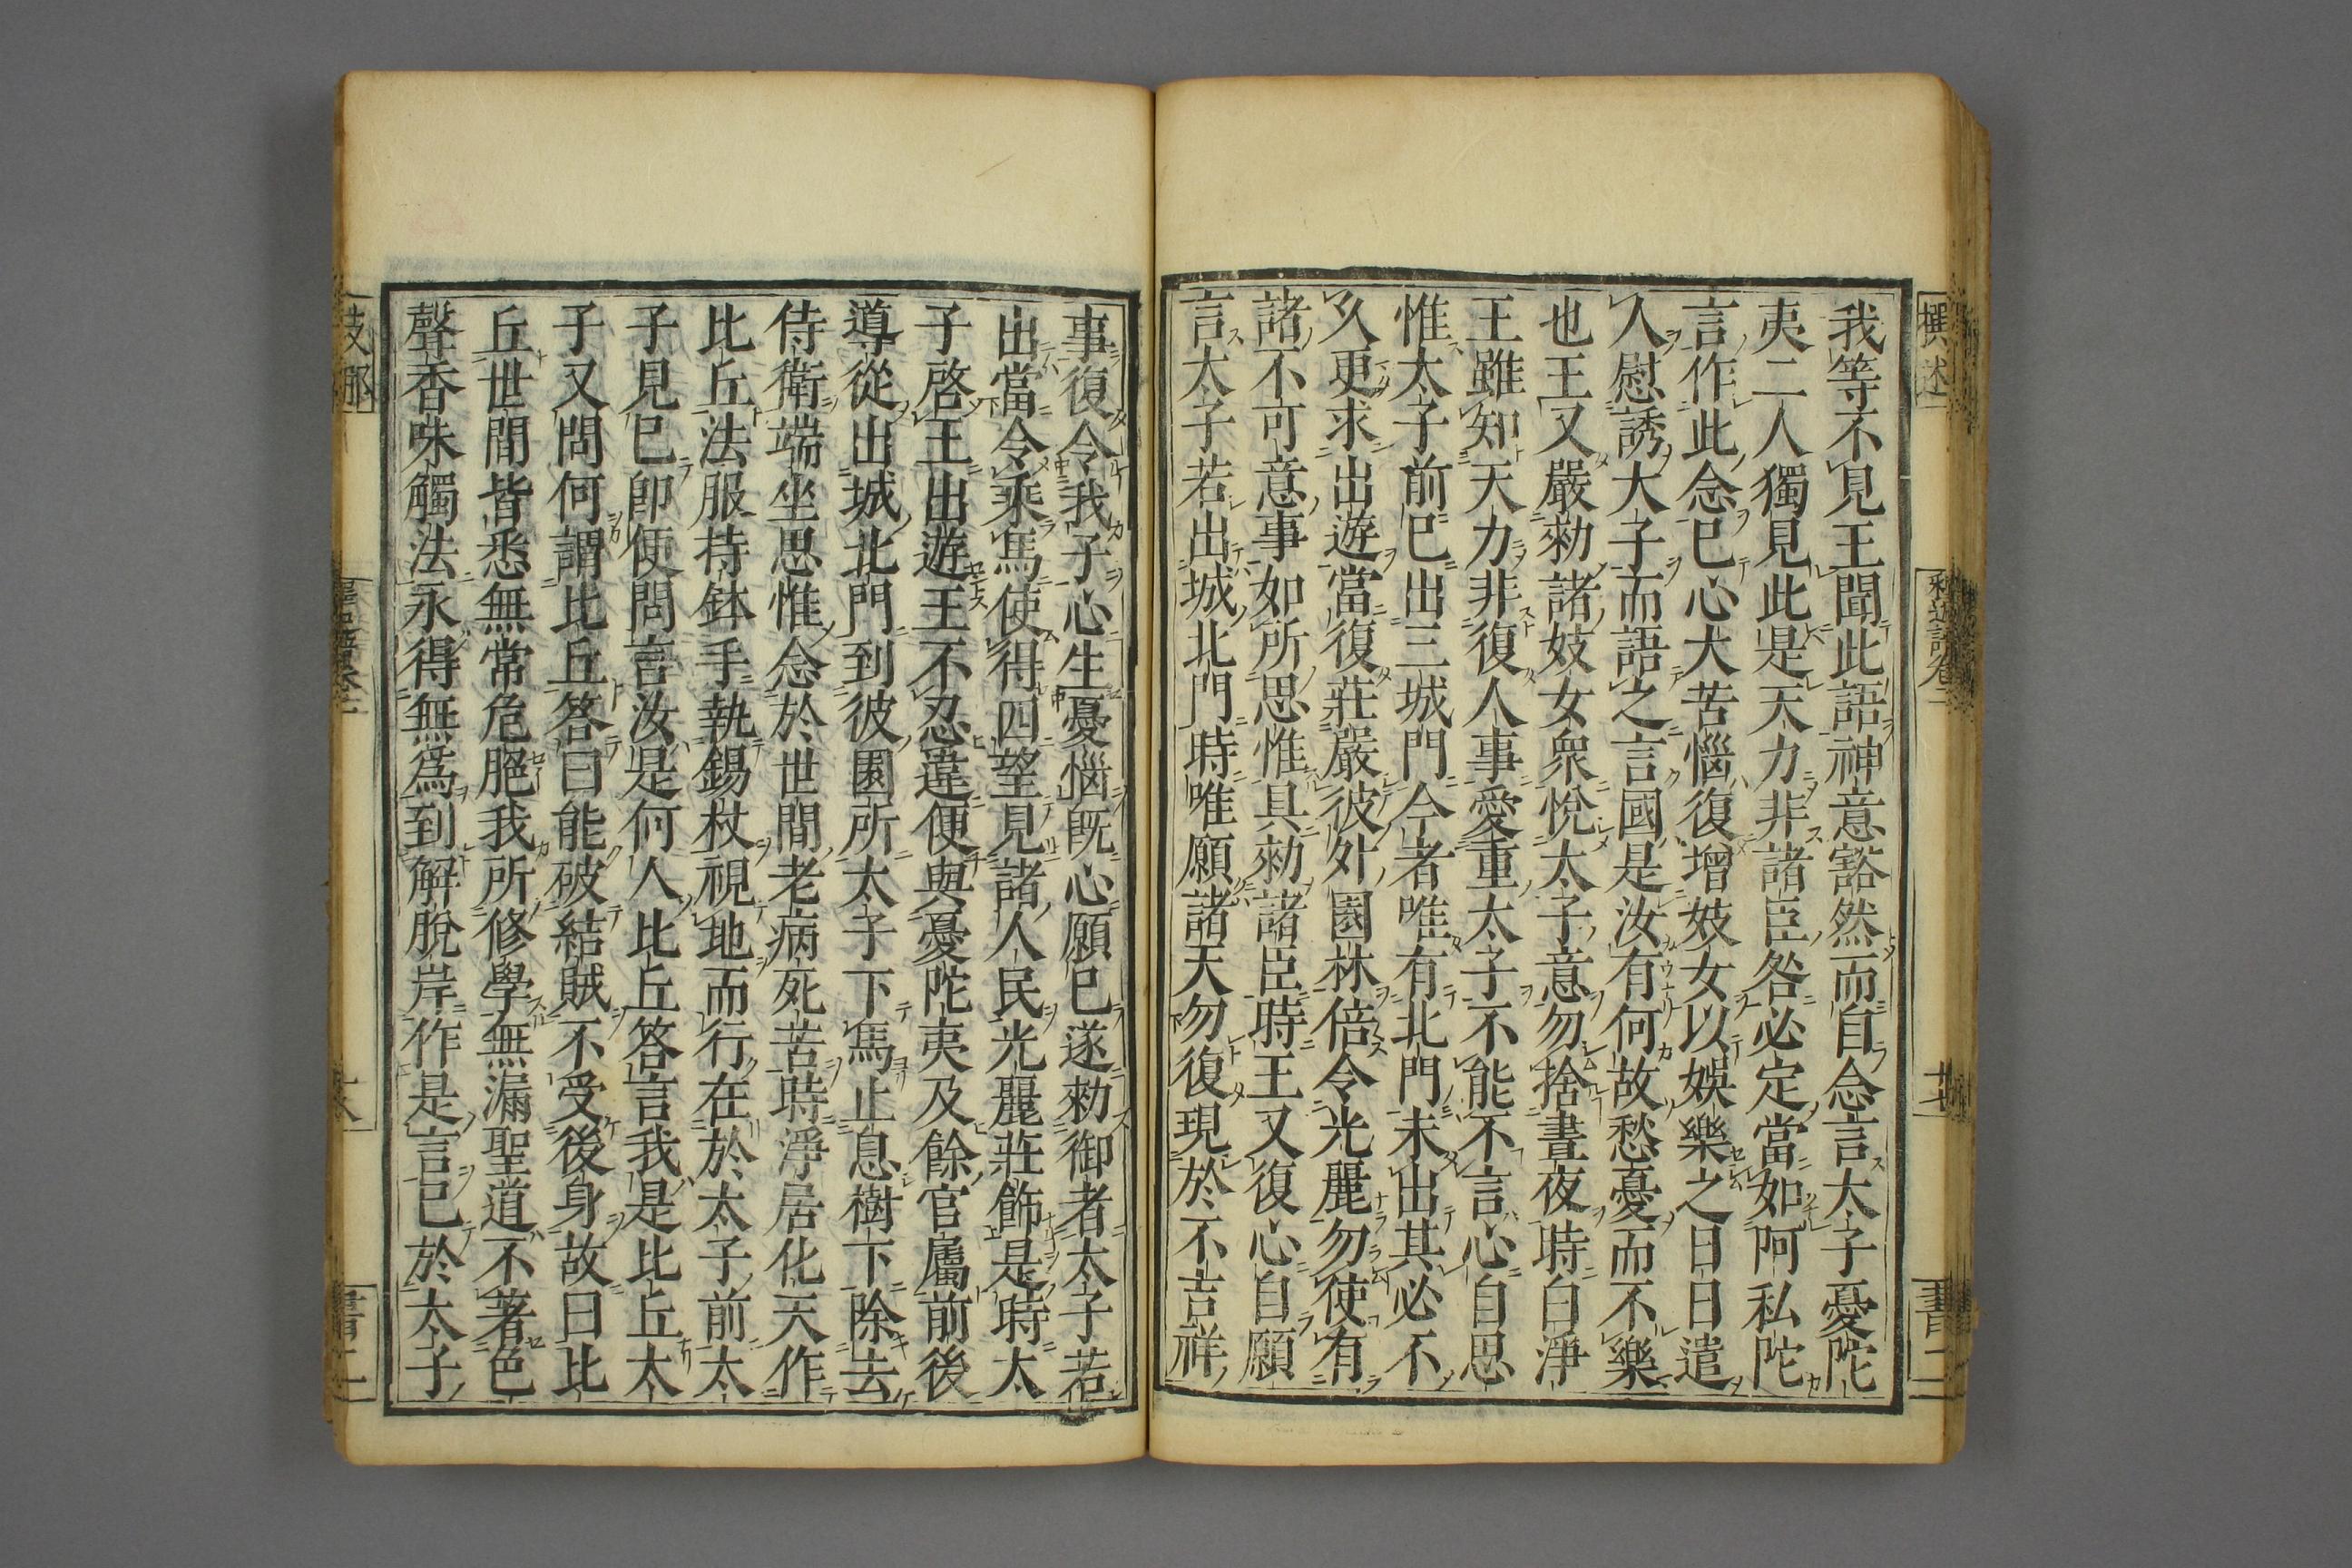 撰述
釋迦譜卷二
我等不見王聞此語神意豁然而自念言太子憂陀
夷二人獨見此是天力非諸臣咎必定當如阿私陀
言作此念已心大苦惱復增妓女以娛樂之日日遣
人慰誘太子而語之言國是汝有何故愁憂而不樂
也王又嚴勑諸妓女衆悅太子意勿捨晝夜時白淨
王雖知天力非復人事愛重太子不能不言心自思
惟太子前已出三城門今者唯有北門未出其必不
久更求出遊當復莊嚴彼外園林倍令光麗勿使有
諸不可意事如所思惟具勑諸臣時王又復心自願
言太子若出城北門時唯願諸天勿復現於不吉祥
事復令我子心生憂惱既心願已遂勑御者太子若
出當令乘馬使得四望見諸人民光麗莊飾是時太
子啓王出遊王不忍違便與憂陀夷及餘官屬前後
導從出城北門到彼園所太子下馬止息樹下除去
侍衛端坐思惟念於世間老病死苦時淨居化天作
比丘法服持鉢手執錫杖視地而行在於太子前太
子見已卽便問言汝是何人比丘答言我是比丘太
子又問何謂比丘答曰能破結賊不受後身故曰比
丘世間皆悉無常危脆我所修學無漏聖道不著色
聲香味觸法永得無爲到解脫岸作是言已於太子